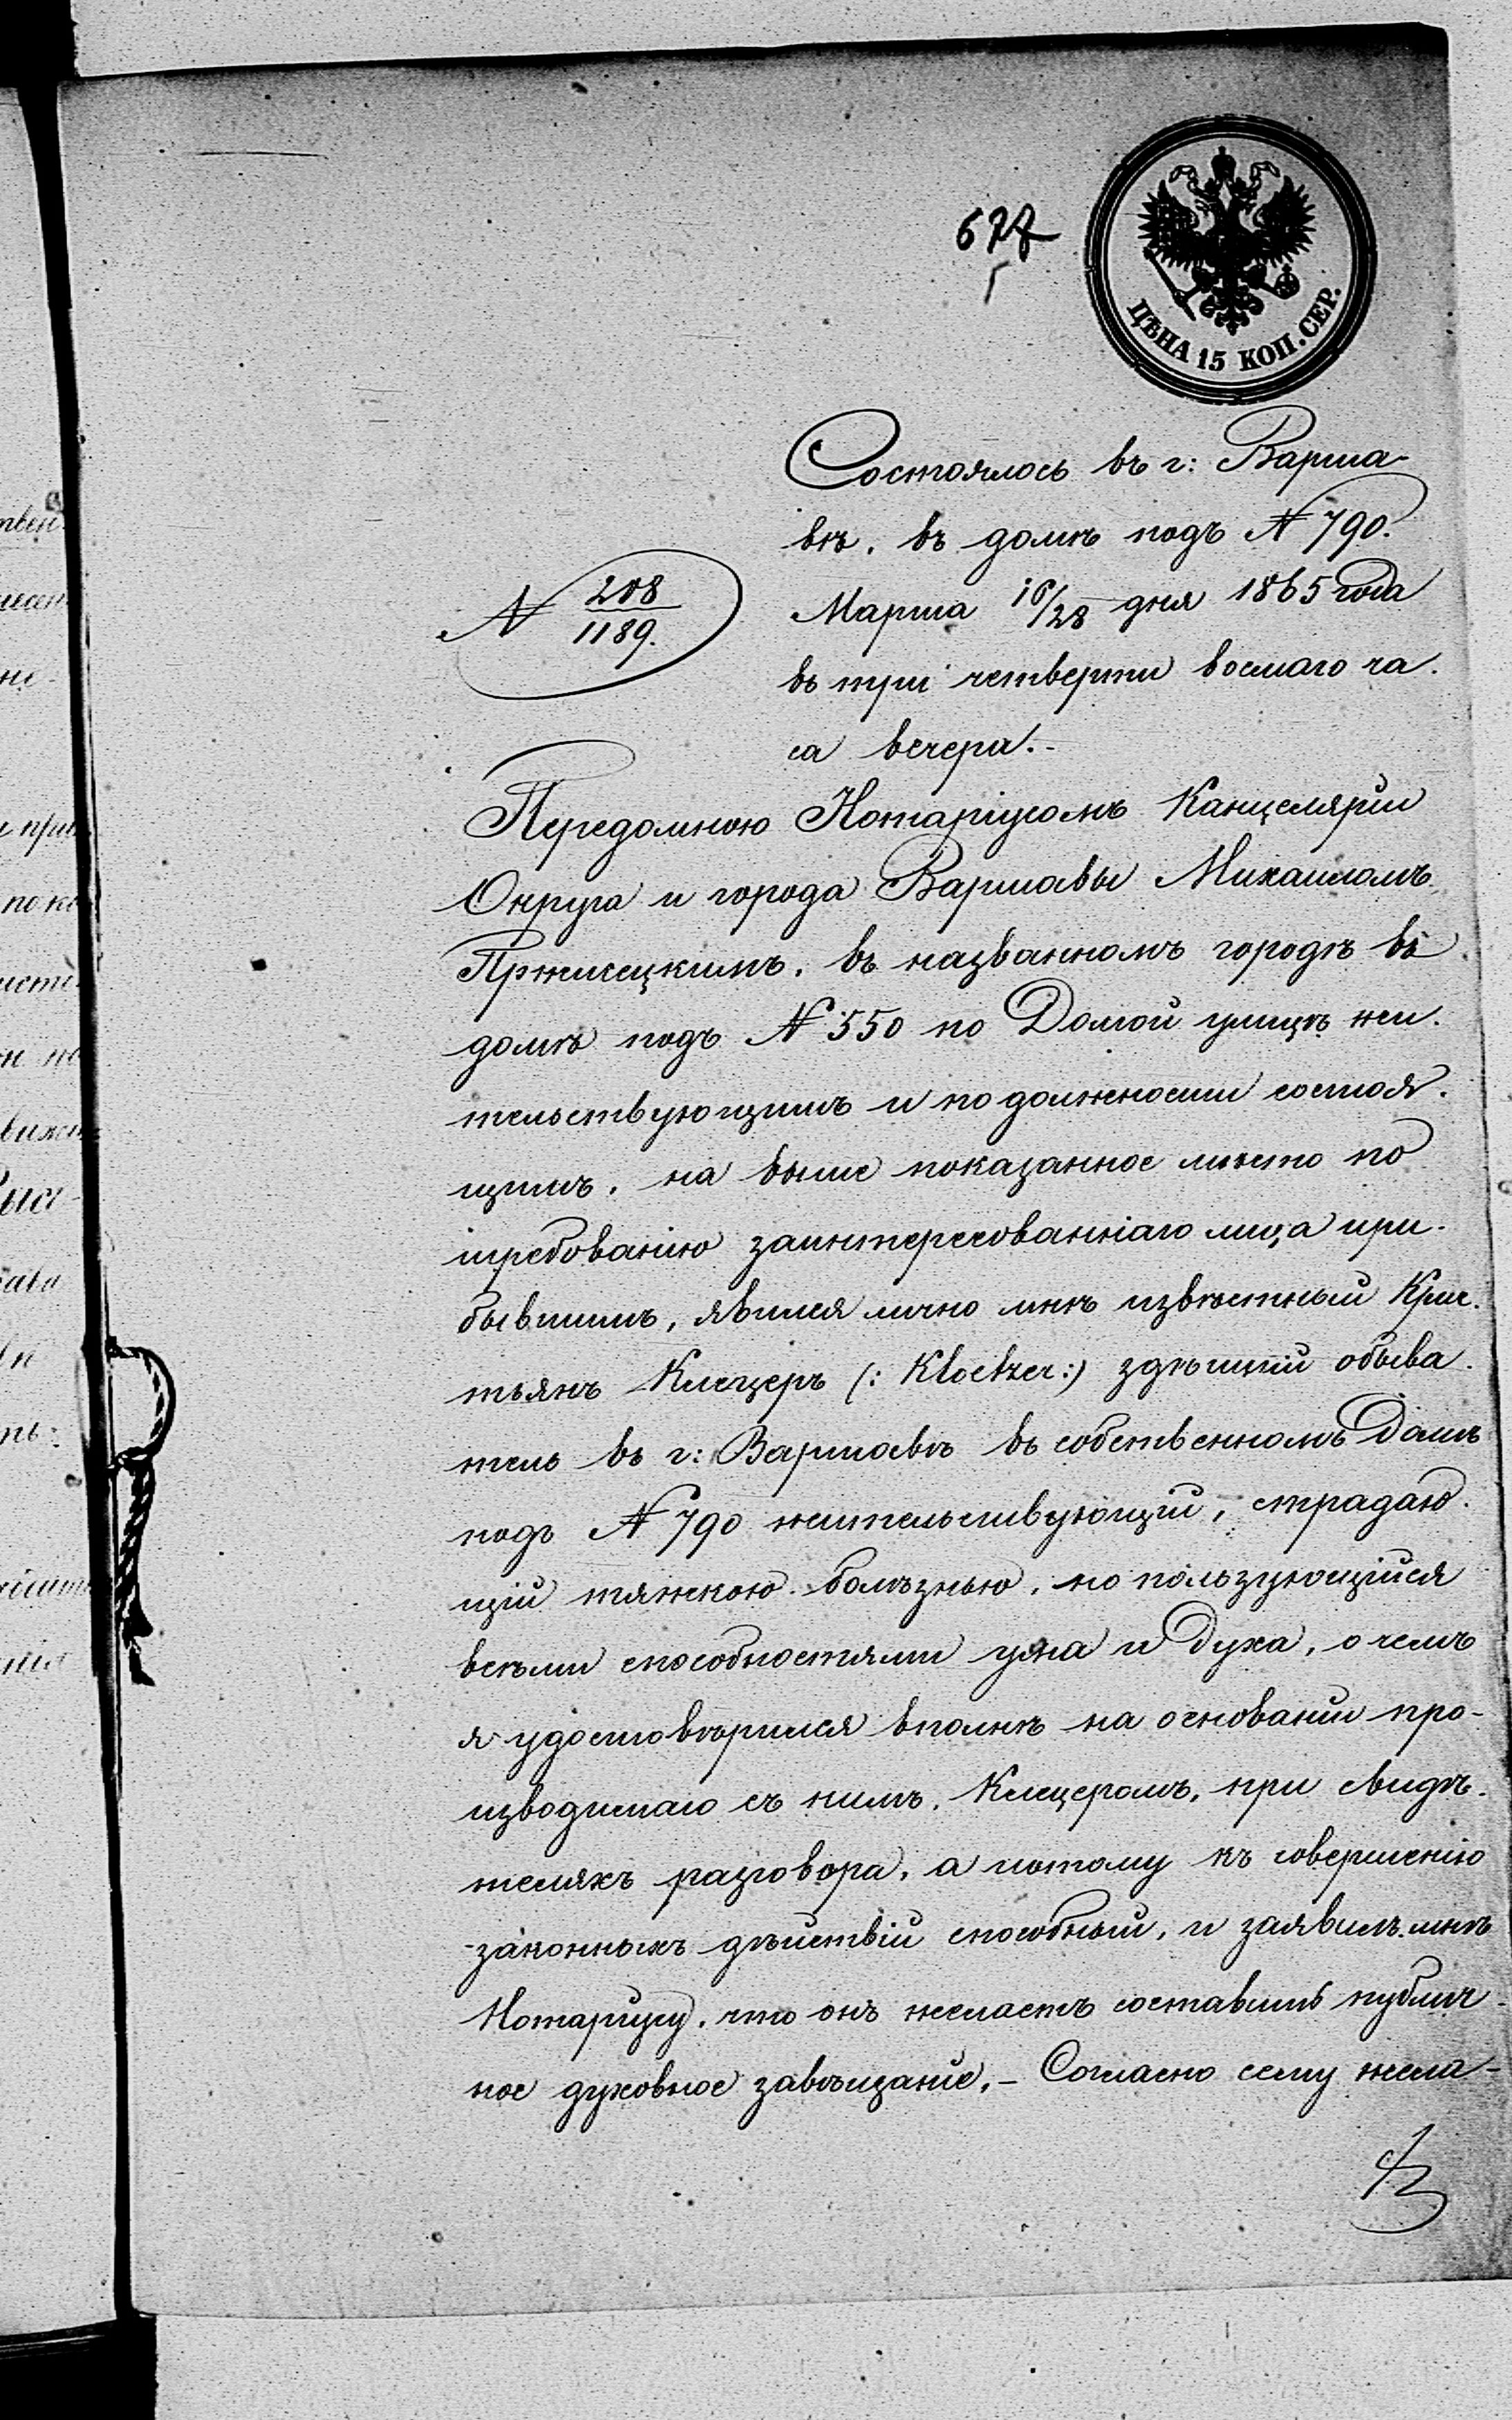 ЦѢНА 15 КОП. СЕР.
Состоялось въ г: Варша-
вѣ, въ домѣ подъ № 790.
№ 208/1189.
Марта 16/28 дня 1865 года
въ три четверти восмаго ча-
са вечера.-
Передомною Нотаріусомъ Канцеляріи
Округа и города Варшавы Михаиломъ
въ названномъ городѣ въ
домѣ подъ № 550 по Долгой улицѣ жи-
тельствующимъ и по должности состоя-
щимъ, на выше показанное мѣсто по
требованію заинтересованнаго лица при-
бывшимъ, явился лично мнѣ извѣстный Крис-
тьянъ Клецеръ (: Kloetzer :) здѣшній обыва-
тель въ г: Варшавѣ въ собственномъ Домѣ
подъ № 790 жительствующій, страдаю-
щій тяжкою болѣзнью, но пользующійся
всѣми способностями ума и Духа, о чемъ
я удостовѣрился вполнѣ на основаніи про-
изводимаго съ нимъ, Клецеромъ, при свидѣ-
теляхъ разговора, а потому къ совершенію
законныхъ дѣйствій способный, и заявилъ мнѣ
Нотаріусу, что онъ желаетъ составить публич-
ное духовное завѣщаніе.- Согласно сему жела-